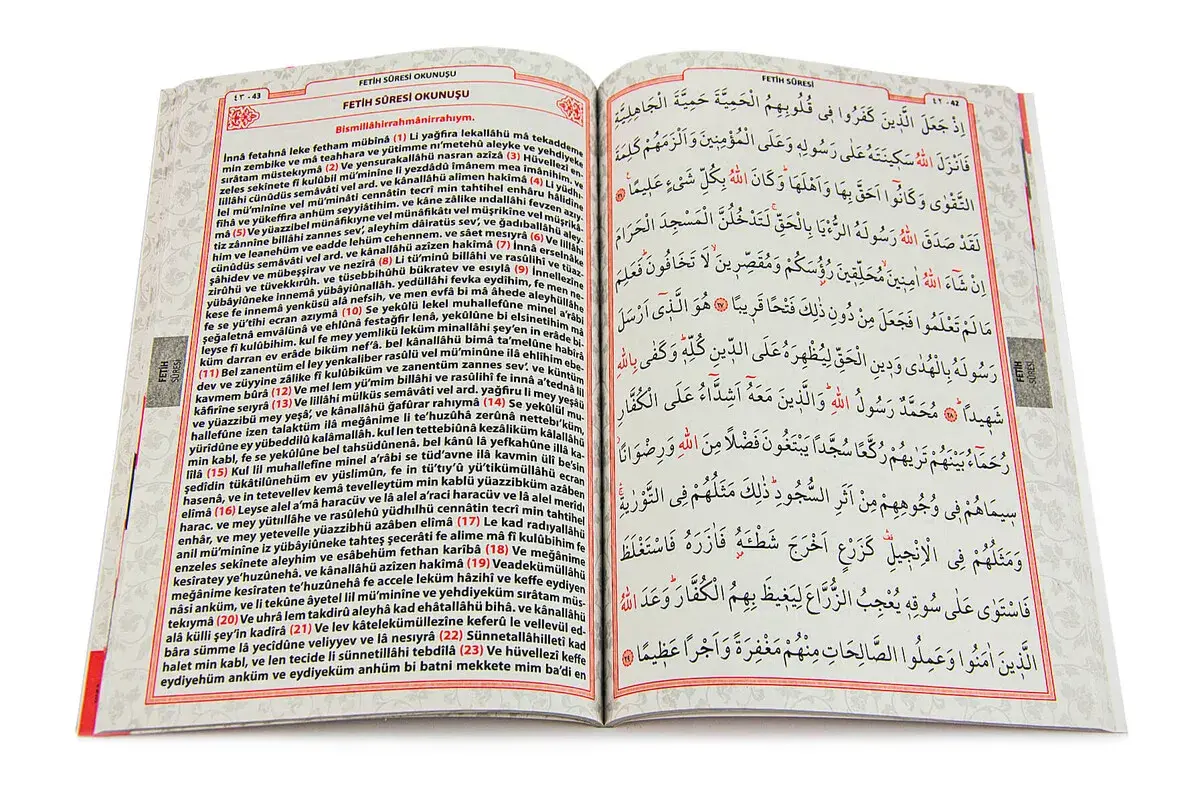 FETİH SÛRESİ
٤٢ - 42
اِذْ جَعَلَ الَّذ۪ينَ كَفَرُوا ف۪ي قُلُوبِهِمُ الْحَمِيَّةَ حَمِيَّةَ الْجَاهِلِيَّةِ
فَاَنْزَلَ اللّٰهُ سَك۪ينَتَهُ عَلٰى رَسُولِه۪ وَعَلَى الْمُؤْمِن۪ينَ وَاَلْزَمَهُمْ كَلِمَةَ
التَّقْوٰى وَكَانُٓوا اَحَقَّ بِهَا وَاَهْلَهَاۜ وَكَانَ اللّٰهُ بِكُلِّ شَيْءٍ عَل۪يمًا۟ ﴿٢٦﴾
لَقَدْ صَدَقَ اللّٰهُ رَسُولَهُ الرُّءْيَا بِالْحَقِّۚ لَتَدْخُلُنَّ الْمَسْجِدَ الْحَرَامَ
اِنْ شَٓاءَ اللّٰهُ اٰمِن۪ينَۙ مُحَلِّق۪ينَ رُؤُ۫سَكُمْ وَمُقَصِّر۪ينَۙ لَا تَخَافُونَۜ فَعَلِمَ
مَا لَمْ تَعْلَمُوا فَجَعَلَ مِنْ دُونِ ذٰلِكَ فَتْحًا قَر۪يبًا ﴿٢٧﴾ هُوَ الَّذ۪ٓي اَرْسَلَ
رَسُولَهُ بِالْهُدٰى وَد۪ينِ الْحَقِّ لِيُظْهِرَهُ عَلَى الدّ۪ينِ كُلِّه۪ۜ وَكَفٰى بِاللّٰهِ
شَه۪يدًاۜ ﴿٢٨﴾ مُحَمَّدٌ رَسُولُ اللّٰهِۜ وَالَّذ۪ينَ مَعَهُٓ اَشِدَّٓاءُ عَلَى الْكُفَّارِ
رُحَمَٓاءُ بَيْنَهُمْ تَرٰيهُمْ رُكَّعًا سُجَّدًا يَبْتَغُونَ فَضْلًا مِنَ اللّٰهِ وَرِضْوَانًاۘ
س۪يمَاهُمْ ف۪ي وُجُوهِهِمْ مِنْ اَثَرِ السُّجُودِۜ ذٰلِكَ مَثَلُهُمْ فِي التَّوْرٰيةِۚ
وَمَثَلُهُمْ فِي الْاِنْج۪يلِ۠ كَزَرْعٍ اَخْرَجَ شَطْـَٔهُ۫ فَاٰزَرَهُ فَاسْتَغْلَظَ
فَاسْتَوٰى عَلٰى سُوقِه۪ يُعْجِبُ الزُّرَّاعَ لِيَغ۪يظَ بِهِمُ الْكُفَّارَۜ وَعَدَ اللّٰهُ
الَّذ۪ينَ اٰمَنُوا وَعَمِلُوا الصَّالِحَاتِ مِنْهُمْ مَغْفِرَةً وَاَجْرًا عَظ۪يمًا ﴿٢٩﴾
FETİH
SÛRESİ
٤٣ - 43
FETİH SÛRESİ OKUNUŞU
FETİH SÛRESİ OKUNUŞU
Bismillâhirrahmânirrahıym.
İnnâ fetahnâ leke fetham mübînâ (1) Li yağfira lekallâhü mâ tekaddeme
min zembike ve mâ teahhara ve yütimme nı’metehû aleyke ve yehdiyeke
sırâtam müstekıymâ (2) Ve yensurakallâhü nasran azîzâ (3) Hüvellezî en-
zeles sekînete fî kulûbil mü’minîne li yezdâdû îmânem mea îmânihim. ve
lillâhi cünûdüs semâvâti vel ard. ve kânallâhü alîmen hakîmâ (4) Li yüdh-
ılel mü’minîne vel mü’minâti cennâtin tecrî min tahtihel enhâru hâlidîne
fîhâ ve yükeffira anhüm seyyiâtihim. ve kâne zâlike ındallâhi fevzen azıy-
mâ (5) Ve yüazzibel münâfikıyne vel münâfikâti vel müşrikîne vel müşrikâ-
tiz zânnîne billâhi zannes sev’, aleyhim dâiratüs sev’, ve ğadıballâhü aley-
him ve leanehüm ve eadde lehüm cehennem. ve sâet mesıyrâ (6) Ve lillâhi
cünûdüs semâvâti vel ard. ve kânallâhü azîzen hakîmâ (7) İnnâ erselnâke
şâhidev ve mübeşşirav ve nezîrâ (8) Li tü’minû billâhi ve rasûlihî ve tüaz-
zirûhü ve tüvekkırûh. ve tüsebbihûhü bükratev ve esıylâ (9) İnnellezîne
yübâyiûneke innemâ yübâyiûnallah. yedüllâhi fevka eydîhim, fe men ne-
kese fe innemâ yenküsü alâ nefsih, ve men evfâ bi mâ âhede aleyhüllâhe
fe se yü’tîhi ecran azıymâ (10) Se yekûlü lekel muhallefûne minel a’râbi
şeğaletnâ emvâlünâ ve ehlûnâ festağfir lenâ, yekûlûne bi elsinetihim mâ
leyse fî kulûbihim. kul fe mey yemlikü leküm minallâhi şey’en in erâde bi-
küm darran ev erâde biküm nef’â. bel kânallâhü bimâ ta’melûne habîrâ
(11) Bel zanentüm el ley yenkaliber rasûlü vel mü’minûne ilâ ehlîhim ebe-
dev ve züyyine zâlike fî kulûbiküm ve zanentüm zannes sev’. ve küntüm
kavmem bûrâ (12) Ve mel lem yü’mim billâhi ve rasûlihî fe innâ a’tednâ lil
kâfirîne seıyrâ (13) Ve lillâhi mülküs semâvâti vel ard. yağfiru li mey yeşâü
ve yüazzibü mey yeşâ’, ve kânallâhü ğafûrar rahıymâ (14) Se yekûlül mu-
hallefûne izen talaktüm ilâ meğânime li te’huzûhâ zerûnâ nettebı’küm,
yürîdûne ey yübeddilû kalâmallâh. kul len tettebiûnâ kezâliküm kâlallâhü
min kabl, fe se yekûlûne bel tahsüdûnenâ. bel kânû lâ yefkahûne illâ ka-
lîlâ (15) Kul lil muhallefîne minel a’râbi se tüd’avne ilâ kavmin ülî be’sin
şedîdin tükâtilûnehüm ev yüslimûn, fe in tütıy’û yü’tikümüllâhü ecran
hasenâ, ve in tetevellev kemâ tevelleytüm min kablü yüazzibküm azâben
elîmâ (16) Leyse alel a’mâ haracüv ve lâ alel a’raci haracüv ve lâ alel merîdı
harac. ve mey yütıllâhe ve rasûlehû yüdhılhü cennâtin tecrî min tahtihel
enhâr, ve mey yetevelle yüazzibhü azâben elîmâ (17) Le kad radıyallâhü
anil mü’minîne iz yübâyiûneke tahteş şecerâti fe alime mâ fî kulûbihim fe
enzeles sekînete aleyhim ve esâbehüm fethan karîbâ (18) Ve meğânime
kesîratey ye’huzûnehâ. ve kânallâhü azîzen hakîmâ (19) Veadekümüllâhü
meğânime kesîraten te’huzûnehâ fe accele leküm hâzihî ve keffe eydiyen
nâsi anküm, ve li tekûne âyetel lil mü’minîne ve yehdiyeküm sırâtam müs-
tekıymâ (20) Ve uhrâ lem takdirû aleyhâ kad ehâtallâhü bihâ. ve kânallâhü
alâ külli şey’in kadîrâ (21) Ve lev kâtelekümüllezîne keferû le vellevül ed-
bâra sümme lâ yecidûne veliyyev ve lâ nesıyrâ (22) Sünnetallâhilletî kad
halet min kabl, ve len tecide li sünnetillâhi tebdîlâ (23) Ve hüvellezî keffe
eydiyehüm anküm ve eydiyeküm anhüm bi batni mekkete mim ba’di en
FETİH
SÛRESİ